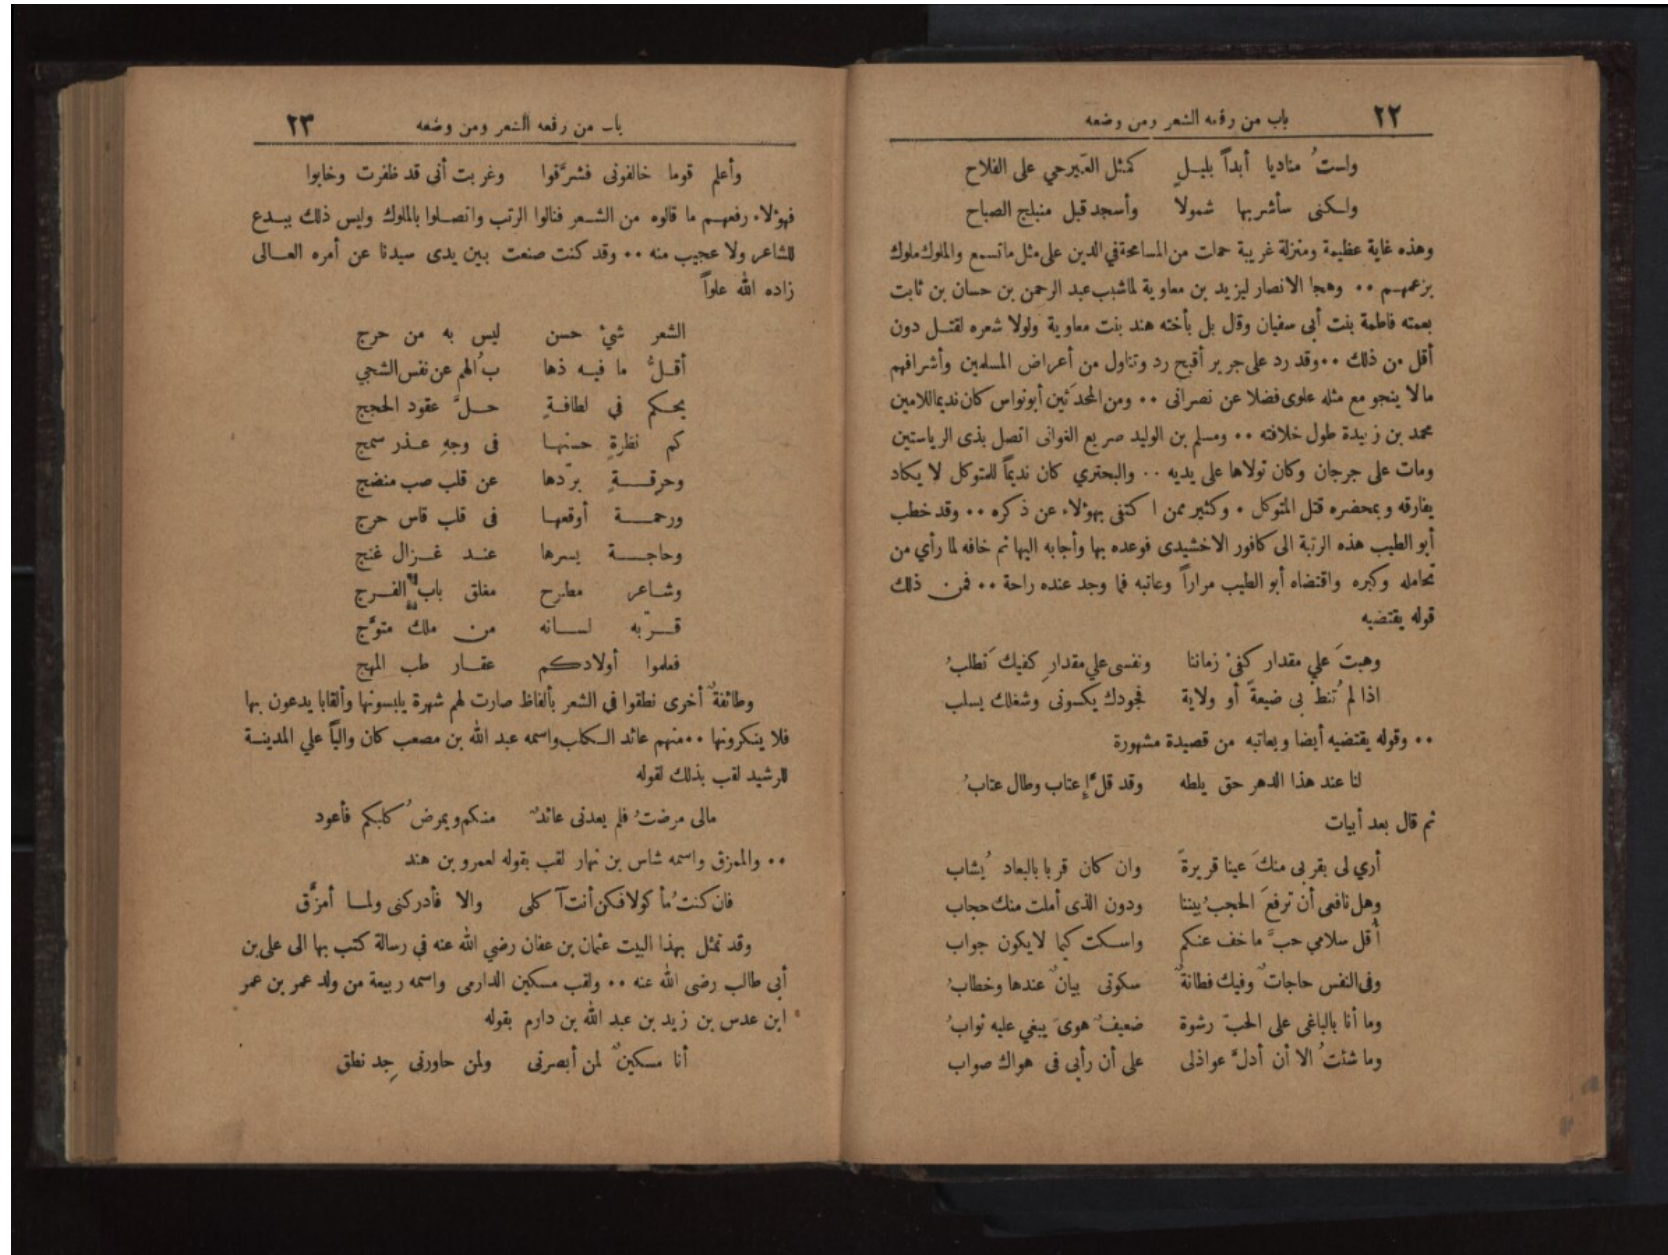 ٢٢ باب من رفعه الشعر ومن وضعه
ولستُ مناديا أبداً بليلٍ كمثل العير حي على الفلاح
ولكنى سأشربها شمولا وأسجد قبل منبلج الصباح
وهذه غاية عظيمة ومنزلة غريبة حملت من المسامحة في الدين على مثل ما تسمع والملوك ملوك
بزعمهم ٠٠ وهجا الانصار ليزيد بن معاوية لما شبب عبد الرحمن بن حسان بن ثابت
بعمته فاطمة بنت أبى سفيان وقال بل بأخته هند بنت معاوية ولولا شعره لقتل دون
أقل من ذلك ٠٠ وقد رد على جرير أقبح رد وتناول من أعراض المسلمين وأشرافهم
مالا ينجو مع مثله علوى فضلا عن نصرانى ٠٠ ومن المحدَثين أبو نواس كان نديما للامين
محمد بن زبيدة طول خلافته ٠٠ ومسلم بن الوليد صريع الغوانى اتصل بذى الرياستين
ومات على جرجان وكان تولاها على يديه ٠٠ والبحتري كان نديماً للمتوكل لا يكاد
يفارقه وبمحضره قتل المتوكل ٠ وكثير ممن اكتفى بهؤلاء عن ذكره ٠٠ وقد خطب
أبو الطيب هذه الرتبة الى كافور الاخشيدى فوعده بها وأجابه اليها ثم خافه لما رأي من
تحامله وكبره واقتضاه أبو الطيب مراراً وعاتبه فما وجد عنده راحة ٠٠ فمن ذلك
قوله يقتضيه
وهبتَ علي مقدار كفىْ زماننا ونفسى علي مقدارِ كفيك تَطلبُ
اذا لم تُنط بى ضيعةً أو ولاية فجودك يكسونى وشغلك يسلب
٠٠ وقوله يقتضيه أيضا ويعاتبه من قصيدة مشهورة
لنا عند هذا الدهر حق يلطه وقد قلَّ إعتاب وطال عتابُ
ثم قال بعد أبيات
أري لى بقربى منكَ عينا قريرةً وان كان قربا بالبعاد يُشاب
وهل نافعى أن ترفعَ الحجبُ بيننا ودون الذى أملت منك حجاب
أُقل سلامي حبَّ ما خف عنكم واسكت كيما لايكون جواب
وفى النفس حاجاتٌ وفيك فطانةٌ سكوتى بيانٌ عندها وخطابُ
وما أنا بالباغى على الحبّ رشوة ضعيفُ هوىً يبغي عليه ثوابُ
وما شئتُ الا أن أدلَّ عواذلى على أن رأيى فى هواك صواب
باب من رفعه الشعر ومن وضعه ٢٣
وأعلم قوما خالفونى فشرَّقوا وغربت أنى قد ظفرت وخابوا
فهؤلاء رفعهم ما قالوه من الشعر فنالوا الرتب واتصلوا بالملوك وليس ذلك يبدع
للشاعر ولا عجيب منه ٠٠ وقد كنت صنعت بين يدى سيدنا عن أمره العالى
زاده الله علواً
الشعر شئ حسن ليس به من حرج
أقلُّ ما فيه ذها بُ الهم عن نفس الشجي
يحكم في لطافةٍ حلَّ عقود الحجج
كم نظرةٍ حسنها فى وجهِ عذر سمج
وحرقةٍ برّدها عن قلب صب منضج
ورحمة أوقعها فى قلب قاس حرج
وحاجة يسرها عند غزال غنج
وشاعر مطرح مغلق باب الفرج
قرّبه لسانه من ملك متوَّج
فعلموا أولادكم عقار طب المهج
وطائفةٌ أخرى نطقوا في الشعر بألفاظ صارت لهم شهرة يلبسونها وألقابا يدعون بها
فلا ينكرونها ٠٠ منهم عائد الكلب واسمه عبد الله بن مصعب كان والياً علي المدينة
للرشيد لقب بذلك لقوله
مالى مرضتُ فلم يعدنى عائدٌ منكم ويمرضُ كلبكم فأعود
٠٠ والممزق واسمه شاس بن نهار لقب بقوله لعمرو بن هند
فان كنتُ مأكولا فكن أنت آكلى والا فأدركنى ولما أمزَّق
وقد تمثل بهذا البيت عثمان بن عفان رضي الله عنه في رسالة كتب بها الى على بن
أبى طالب رضى الله عنه ٠٠ ولقب مسكين الدارمى واسمه ربيعة من ولد عمر بن عمر
ابن عدس بن زيد بن عبد الله بن دارم بقوله
أنا مسكينٌ لمن أبصرنى ولمن حاورنى جِد نطق